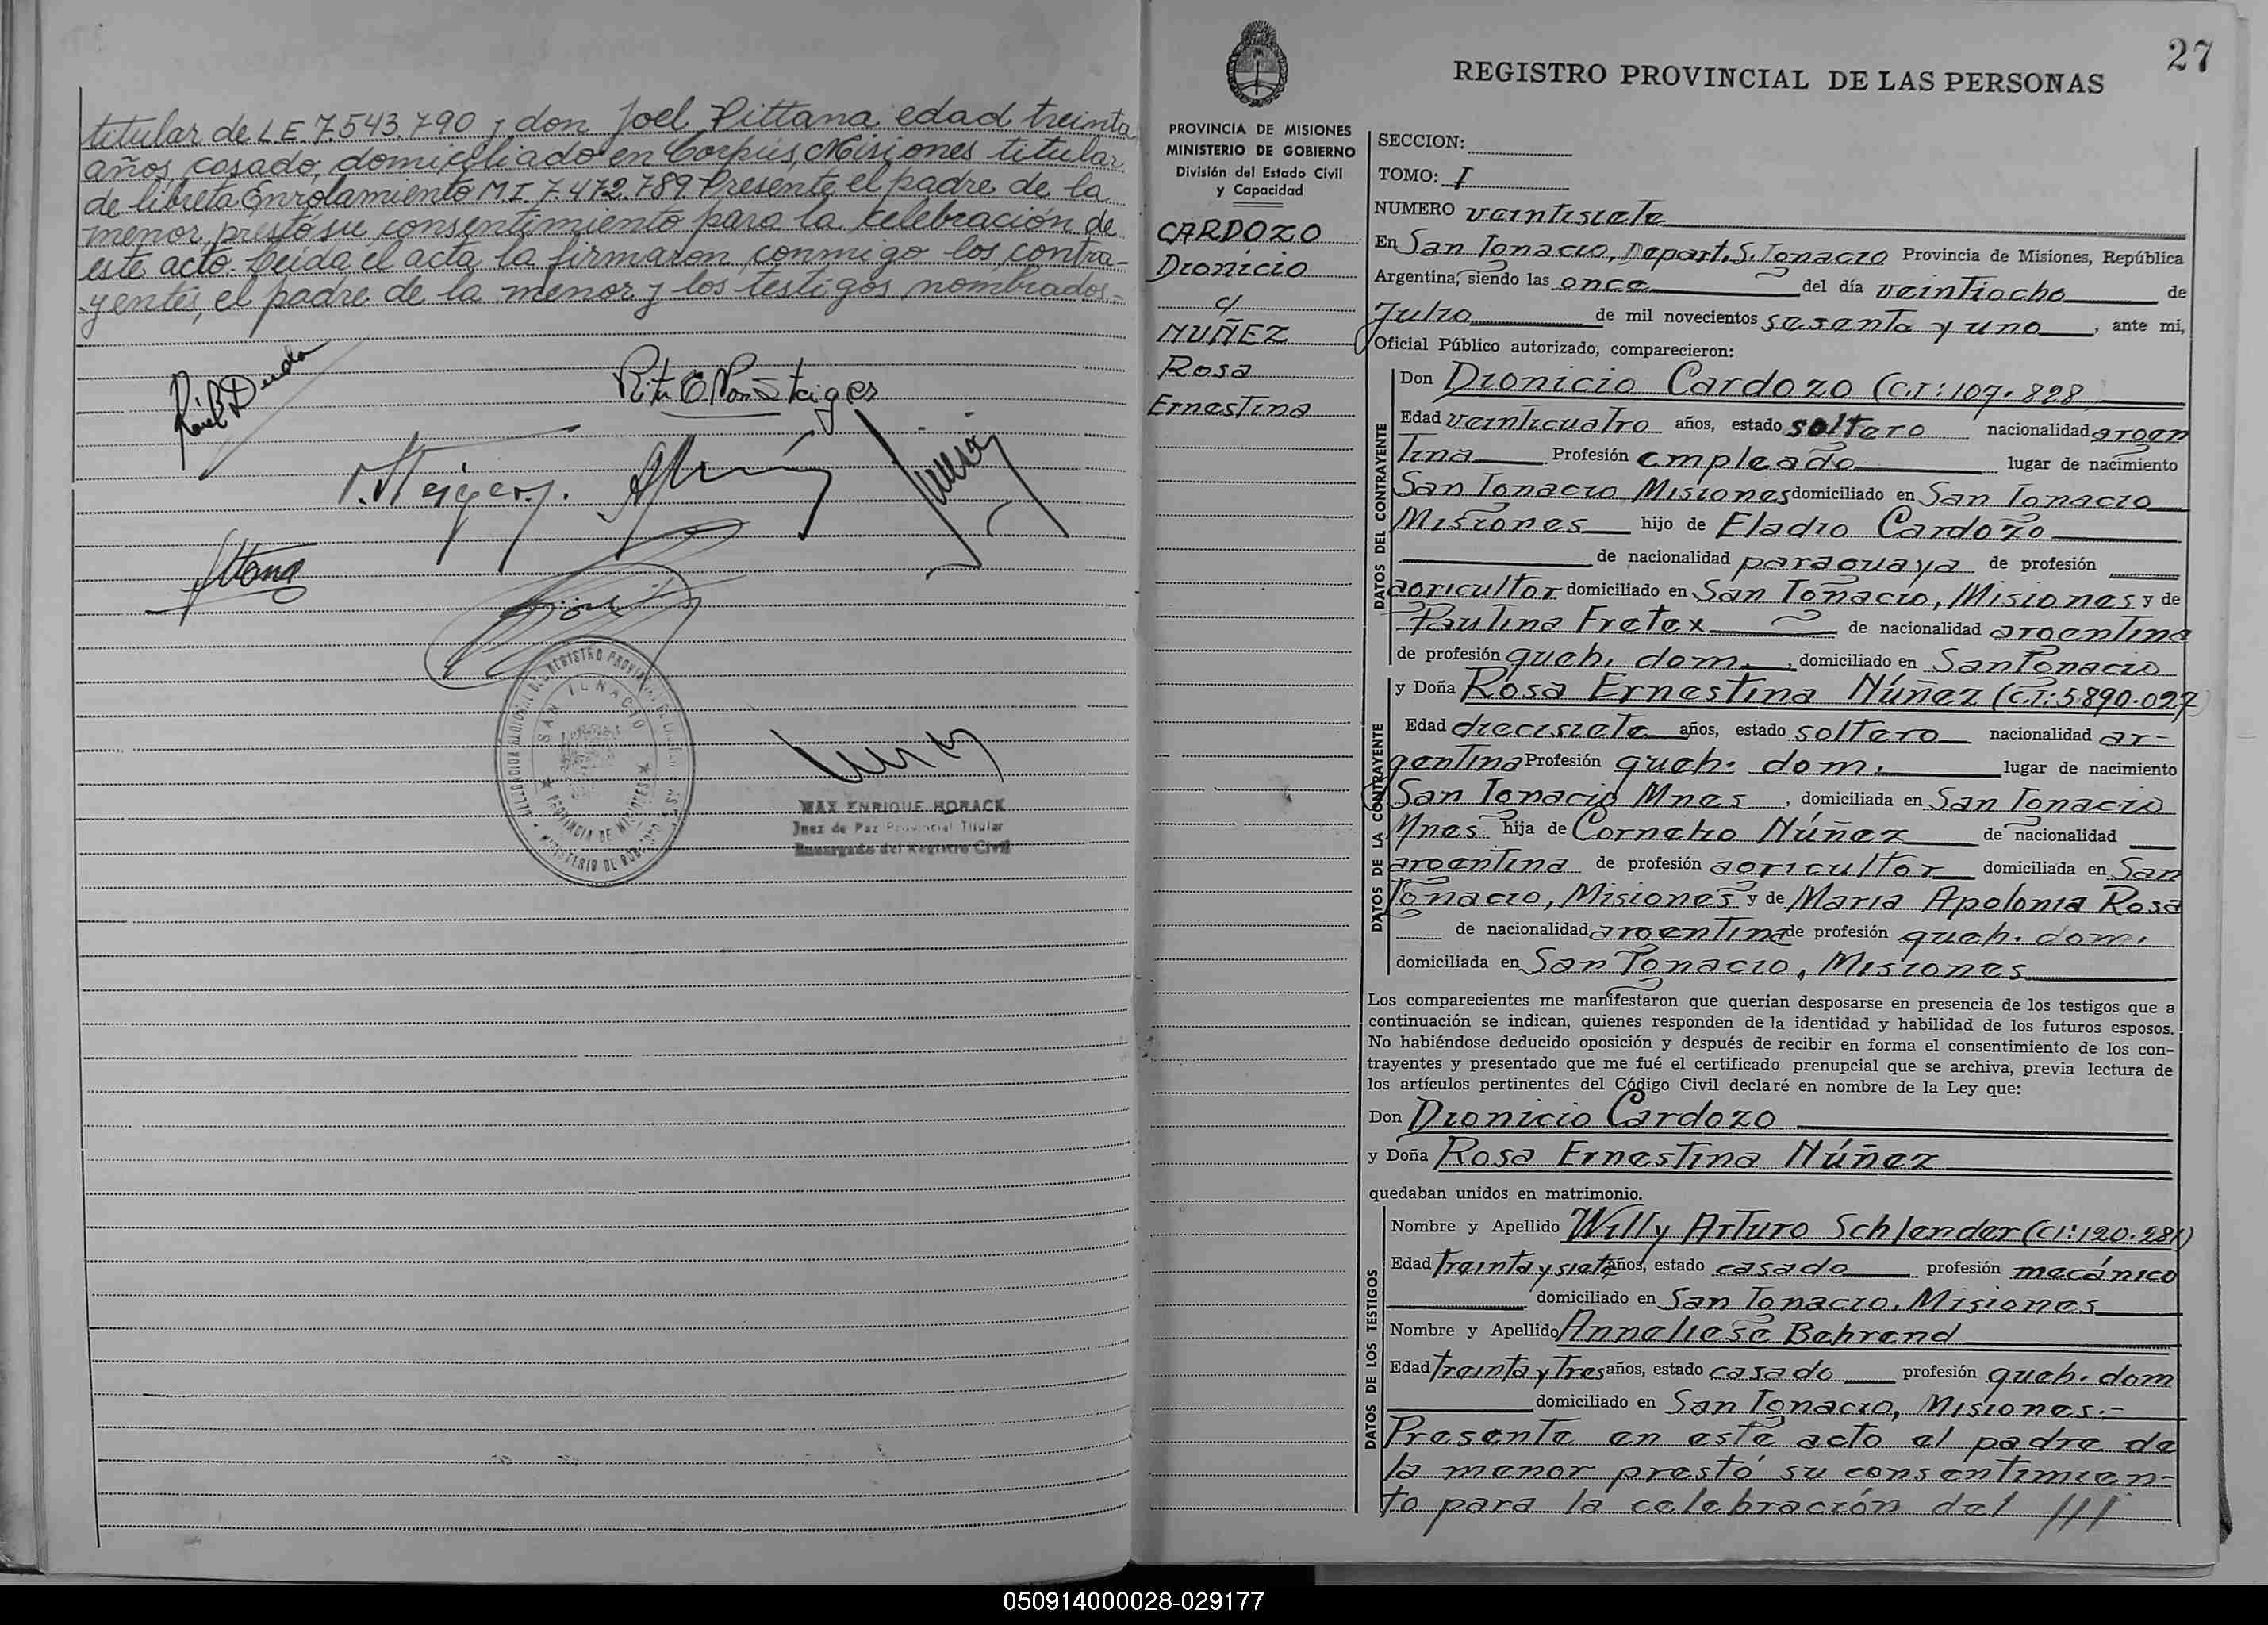 titular de L.E. 7.543.790 y don Joel Pittana edad treinta
años, casado, domiciliado en Corpus, Misiones titular
de libreta Enrolamiento M I. 7.472.789. Presente el padre de la
menor prestó su consentimiento para la celebración de
este acto. Leida el acta la firmaron conmigo los contra-
yentes, el padre de la menor y los testigos nombrados.-
SAN IGNACIO
PROVINCIA DE MISIONES
MAX ENRIQUE HORACK
Juez de Paz Provincial Titular
Encargado del Registro Civil
27
REGISTRO PROVINCIAL DE LAS PERSONAS
PROVINCIA DE MISIONES
MINISTERIO DE GOBIERNO
División del Estado Civil
y Capacidad
CARDOZO
Dionicio
c/
NUÑEZ
Rosa
Ernestina
SECCION:
TOMO: I
NUMERO veintisiete
En San Ignacio, Depart. S. Ignacio Provincia de Misiones, República
Argentina, siendo las once del día veintiocho de
Julio de mil novecientos sesenta y uno, ante mi,
Oficial Público autorizado, comparecieron:
DATOS DEL CONTRAYENTE
Don Dionicio Cardozo (C.I: 107.828
Edad veinticuatro años, estado soltero nacionalidad argen
tina Profesión empleado lugar de nacimiento
San Ignacio Misiones domiciliado en San Ignacio
Misiones hijo de Eladio Cardozo
de nacionalidad paraguaya de profesión
agricultor domiciliado en San Ignacio, Misiones y de
Paulina Fretex de nacionalidad argentina
de profesión queh. dom., domiciliado en San Ignacio
DATOS DE LA CONTRAYENTE
y Doña Rosa Ernestina Núñez (C.I: 5890.027
Edad diecisiete años, estado soltero nacionalidad ar-
gentina Profesión queh. dom. lugar de nacimiento
San Ignacio Mnes, domiciliada en San Ignacio
Mnes hija de Cornelio Núñez de nacionalidad
argentina de profesión agricultor domiciliada en San
Ignacio, Misiones y de Maria Apolonia Rosa
de nacionalidad argentina de profesión queh. dom.
domiciliada en San Ignacio, Misiones
Los comparecientes me manifestaron que querian desposarse en presencia de los testigos que a
continuación se indican, quienes responden de la identidad y habilidad de los futuros esposos.
No habiéndose deducido oposición y después de recibir en forma el consentimiento de los con-
trayentes y presentado que me fué el certificado prenupcial que se archiva, previa lectura de
los artículos pertinentes del Código Civil declaré en nombre de la Ley que:
Don Dionicio Cardozo
y Doña Rosa Ernestina Núñez
quedaban unidos en matrimonio.
DATOS DE LOS TESTIGOS
Nombre y Apellido Willy Arturo Schlender (CI: 120.281)
Edad treinta y siete años, estado casado profesión mecánico
domiciliado en San Ignacio, Misiones
Nombre y Apellido Anneliese Behrend
Edad treinta y tres años, estado casado profesión queh. dom
domiciliado en San Ignacio, Misiones.-
Presente en este acto el padre de
la menor prestó su consentimien-
to para la celebración del ///
050914000028-029177